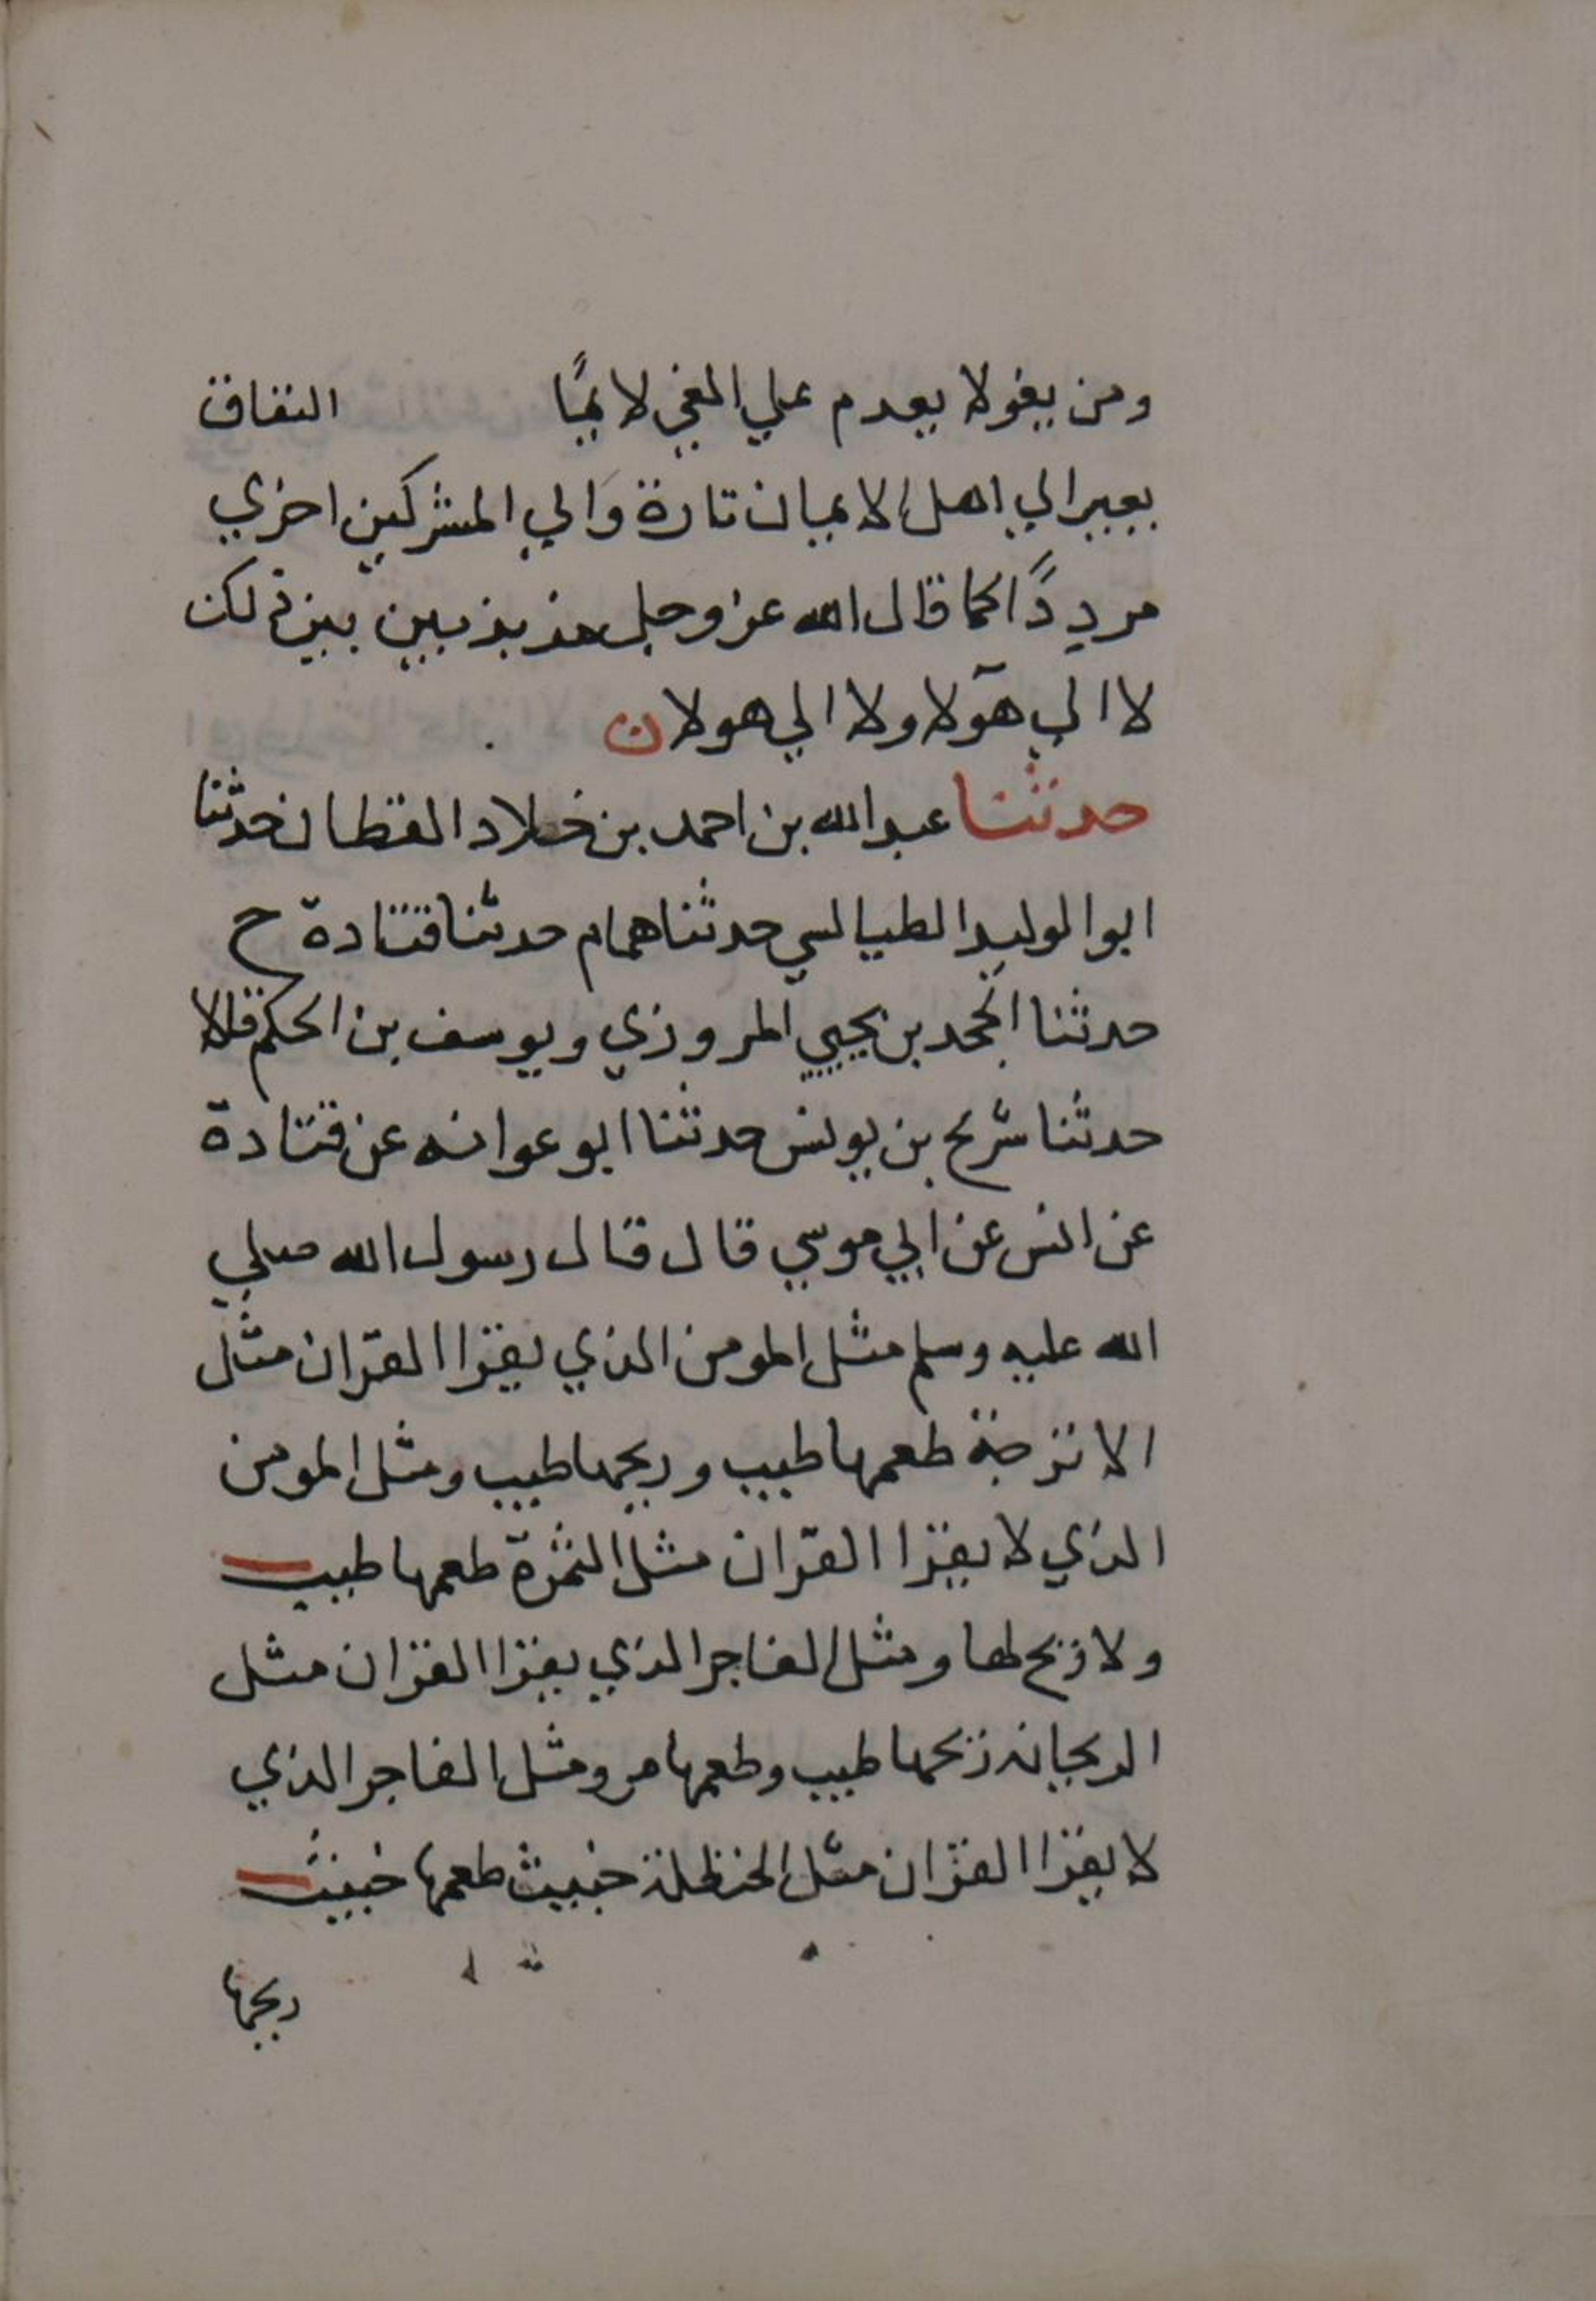 ومن يغولا يعدم علي الغي لايمًا النفاق
يعير الي اهل الايمان تارة وَالي المشركين اخري
مرددًا كما قال الله عز وجل مذبذبين بين ذلك
لا الي هٓولا ولا الي هولا ن
حدثنا عبدالله بن احمد بن خلاد القطان حدثنا
ابوالوليد الطيالسي حدثنا همام حدثنا قتادة ح
حدثنا محمد بن يحيي المروزي ويوسف بن الحكم قالا
حدثنا شريح بن يونس حدثنا ابوعوانه عن قتادة
عن انس عن ابي موسي قال قال رسول الله صلي
الله عليه وسلم مثل المومن الذي يقرا القران مثل
الاترجة طعمها طيب وريحها طيب ومثل المومن
الذي لا يقرا القران مثل التمرة طعمها طيب
ولا ريح لها ومثل الفاجر الذي يقرا القران مثل
الريحانه ريحها طيب وطعمها مر ومثل الفاجر الذي
لا يقرا القران مثل الحنظلة خبيث طعمها خبيث
ريحها